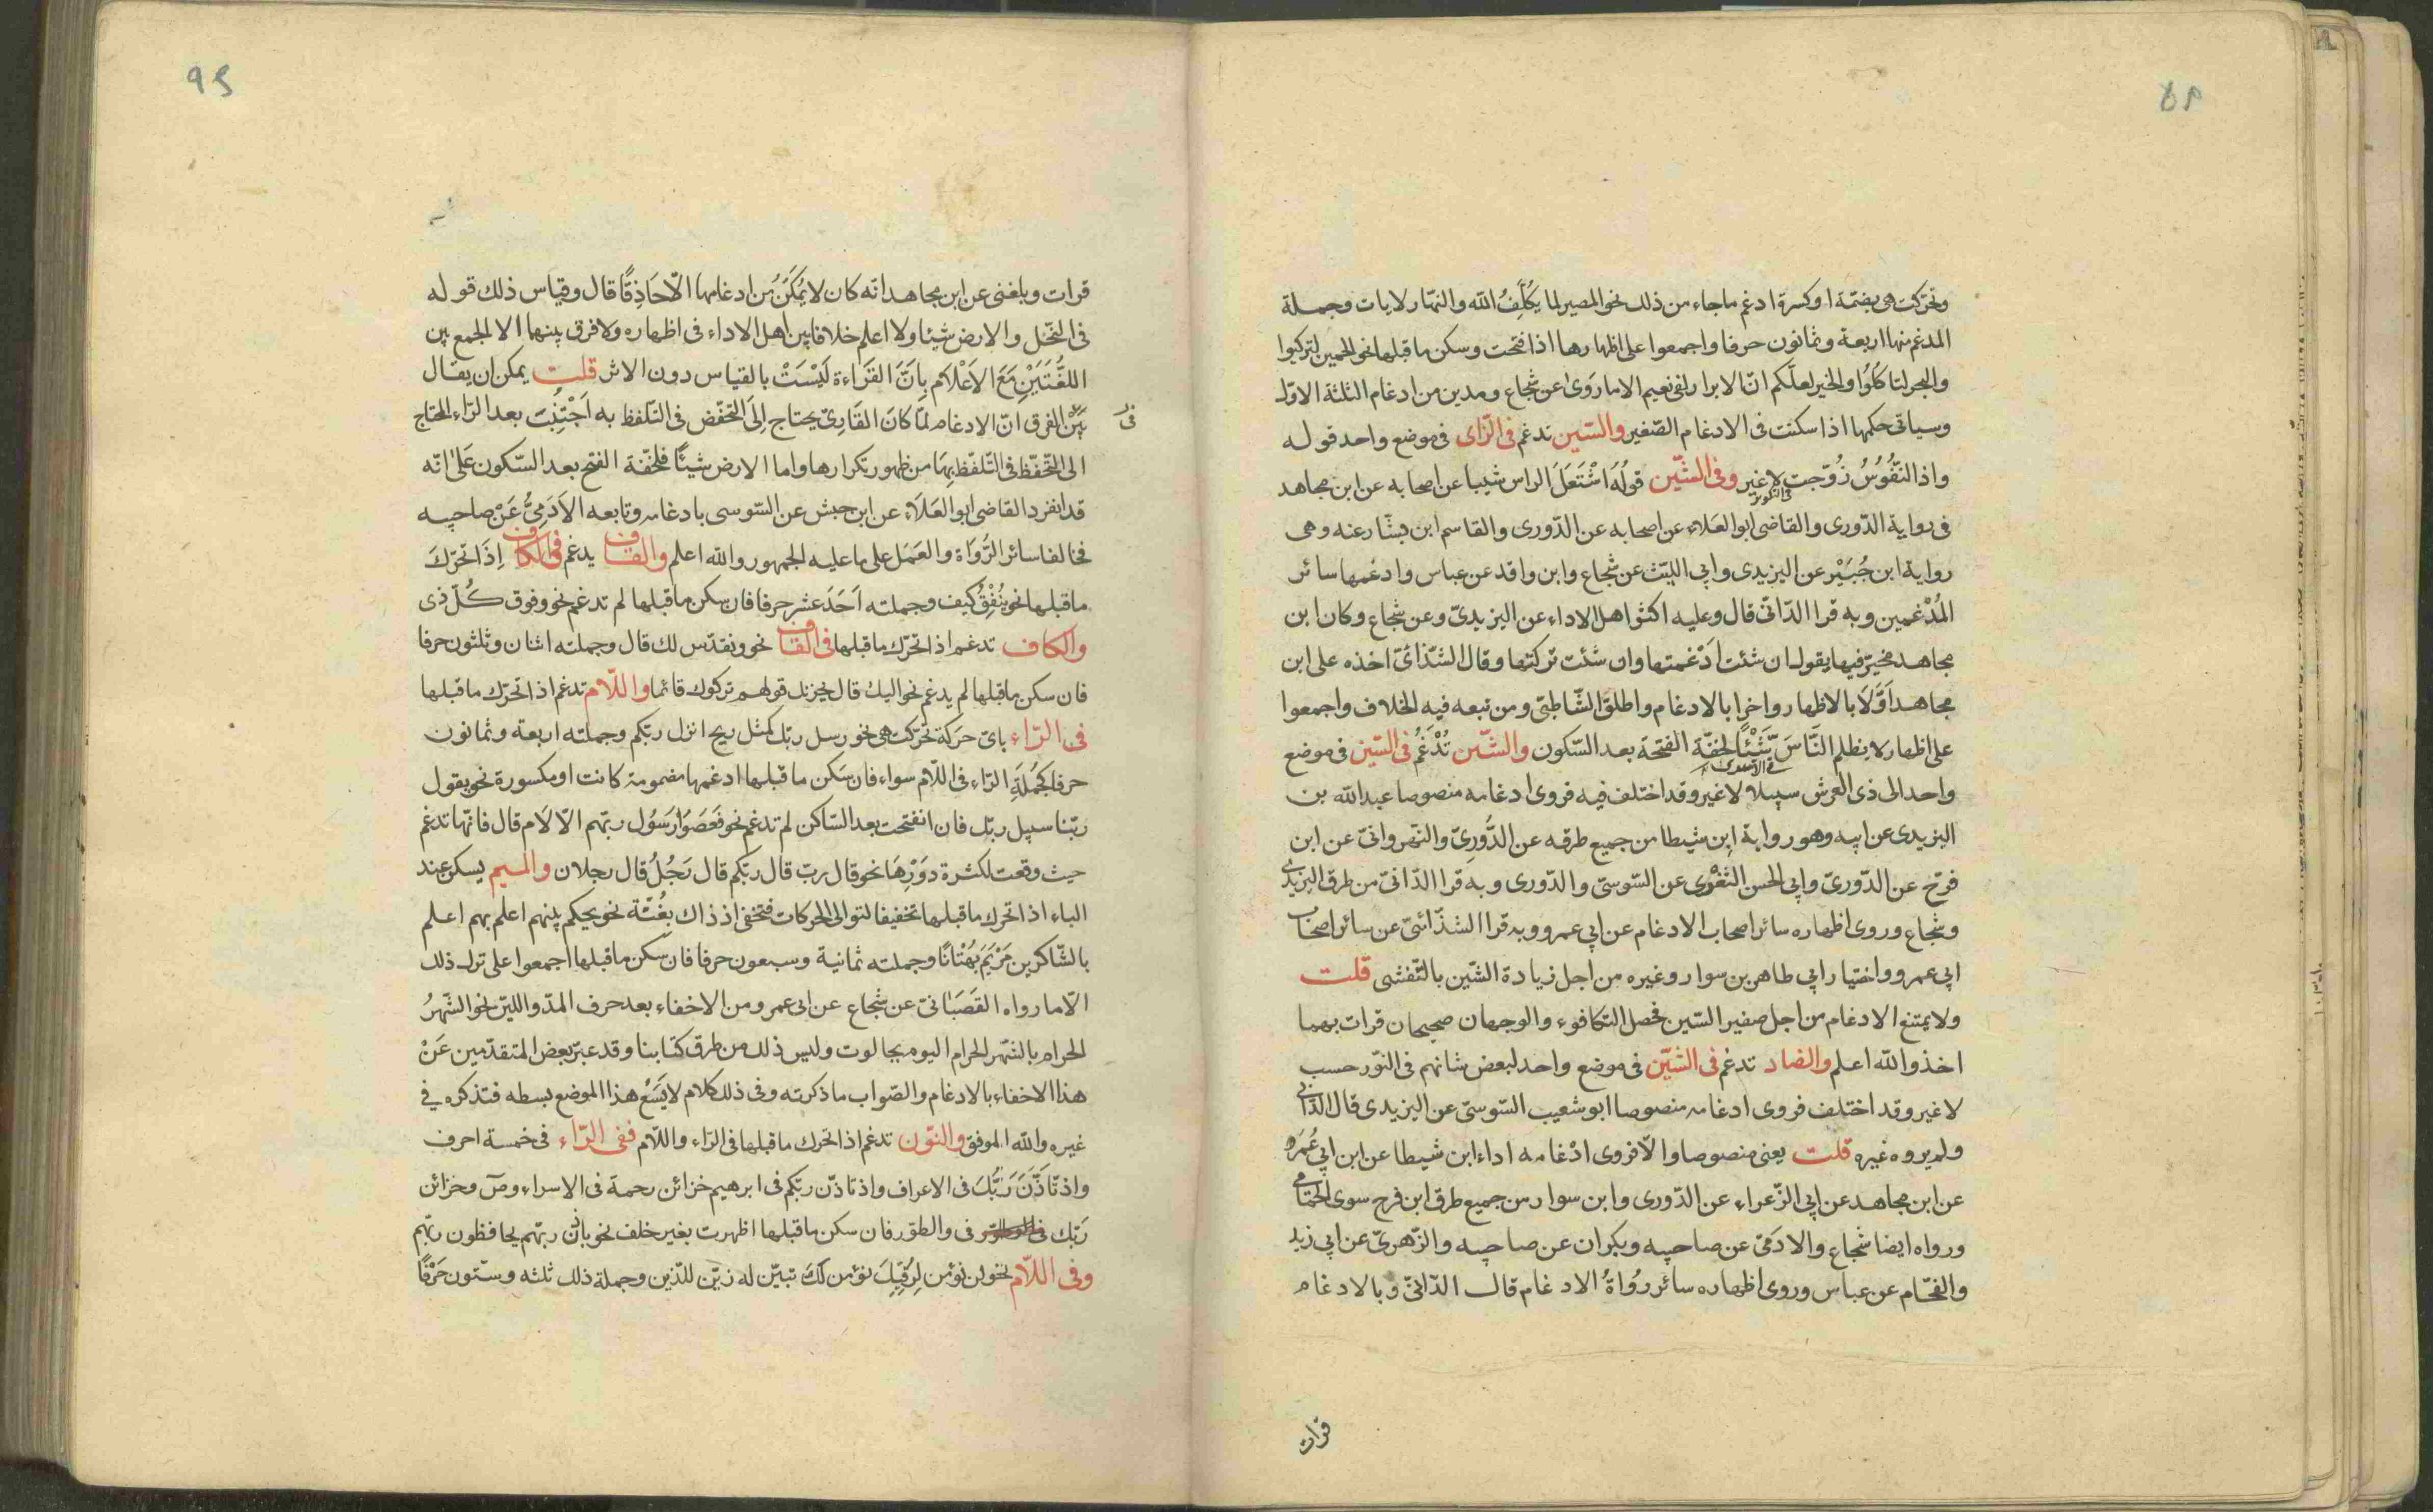 وتحركت هى بضمة او كسرة ادغم ماجاء من ذلك نحو المصير لما يُكَلِّفُ الله والنهار لايات وجملة
المدغم منها اربعة وثمانون حرفا واجمعوا على اظهارها اذا فتحت وسكن ماقبلها نحو الحمير لتركبوا
والبحر لتاكلُوا والخير لعلّكم انّ الابرار لفى نعيم الا ما رَوَى عن شجاع ومدين من ادغام الثلثة الاول
وسياتى حكمها اذا سكنت فى الادغام الصّغير والسّين تدغم فى الزّاى فى موضع واحد قوله
واذا النّفُوسُ زُوّجت فى التكوير لاغير وفى الشّين قولُهُ اشْتَعَلَ الراس شيبا عن اصحابه عن ابن مجاهد
فى رواية الدّورى والقاضى ابو العَلاء عن اصحابه عن الدّورى والقاسم ابن بشّار عنه وهى
رواية ابن جُبَيْر عن اليزيدى وابى الليّث عن شجاع وابن واقد عن عباس وادغمها سائر
المُدْغمين وبه قرا الدّانىّ قال وعليه اكثر اهل الاداء عن اليزيدىّ وعن شجاع وكان ابن
مجاهد مخيّر فيها يقول ان شئت ادْغمتها وان شئت تركتها وقال الشّذائىّ اخذه على ابن
مجاهد اَوَّلَا بالاظهار واخرا بالادغام واطلق الشّاطبىّ ومن تبعه فيه الخلاف واجمعوا
على اظهار لا يظلم النَّاسَ شَّيْئًا لخفّة الفتحة بعد السّكون والشّين تُدْغَمُ فى السّين فى موضع
واحد الى ذى العرش سبيلا لاغير وقد اختلف فيه فروى ادغامه منصوصا عبد الله بن
اليزيدى عن ابيه وهو رواية ابن شيطا من جميع طرقه عن الدُّورِىّ والنّهروانىّ عن ابن
فرّح عن الدّورىّ وابى الحسن الثغْرى عن السّوسىّ والدّورى وبه قرا الدّانىّ من طرق اليزيدى
وشجاع وروى اظهاره سائر اصحاب الادغام عن ابى عمرو وبه قرا الشذّائىّ عن سائر اصحاب
ابى عمرو واختيار ابى طاهر بن سوار وغيره من اجل زيادة الشّين بالتّفشى قلت
ولا يمتنع الادغام من اجل صفير السّين فحصل التكافوء والوجهان صحيحان قرات بهما
اخذ والله اعلم والضاد تدغم فى الشّين فى موضع واحد لبعض شانهم فى النّور حسب
لاغير وقد اختلف فروى ادغامه منصوصا ابو شعيب السّوسىّ عن اليزيدى قال الدّانى
ولم يروه غيره قلت يعنى منصوصا والّا فروى ادْغامه اداء ابن شيطا عن ابن ابى عُمَره
عن ابن مجاهد عن ابى الزّعراء عن الدّورى وابن سوار من جميع طرق ابن فرح سوى الحمّامى
ورواه ايضا شجاع والادَمىّ عن صاحبيه وبكران عن صاحبيه والزّهرىّ عن ابى زيد
والفحّام عن عباس وروى اظهاره سائر رُوَاةُ الادغام قال الدّانىّ وبالادغام
قرات
قرات وبلغنى عن ابن مجاهد انّه كان لا يُمَكِّنُ من ادغامها الّا حَاذِقًا قال وقياس ذلك قوله
فى النّحل والارض شيئا ولا اعلم خلافا بين اهل الاداء فى اظهاره ولا فرق بينهما الا لجمع بين
اللغُتَيَيْنِ مَعَ الاَعْلَامِ بِاَنَّ القَرَاءة لَيْسَتْ بالقياس دون الاثر قلت يمكن ان يقال
بَيْنَ الفرق انّ الادغام لمّا كانَ القَارِىّ يحتاج اِلَى التّحفّض فى التّلفظ به اَجْتُنِبَت بعد الرّاء المحتاج
الى التّحفّظ فى التّلفّظ بِهَا من ظهور تكرارها واما الارض شيئًا فلخفّة الفتح بعد السّكون عَلى انّه
قد انفرد القاضى ابو العَلَاء عن ابن حبش عن السّوسى بادغامه وتابعه الاَدَمِىُّ عَنْ صاحبيه
فخالفا سائر الرُّوَاة والعَمَل على ما عليه الجمهور والله اعلم والقاف يدغم فى الكاف اِذَا تحّرّكَ
ماقبلها نحو يُنْفِقُ كَيف وجملته اَحَدَ عشر حرفا فان سكن ماقبلها لم تدغم نحو وفوق كُلّ ذى
والكاف تدغم اذا تحرّك ماقبلها فى القاف نحو ونقدّس لك قال وجملته اثنان وثلثون حرفا
فان سكن ماقبلها لم يدغم نحو اليك قال يحزنك قولهم تركوك قائما واللّام تدغم اذا تحرّك ماقبلها
فى الرّاء باىّ حركة تحرّكت هى نحو رسل ربّك كمثل ريح انزل ربّكم وجملته اربعة وثمانون
حرفا كجُملَةِ الرّاء فى اللّام سواء فان سَكن ما قبلها ادغمها مضمومة كانت او مكسورة نحو يقول
ربّنا سبيل ربّك فان انفتحت بعد السّاكن لم تدغم نحو فَعَصَوْا رَسُول ربّهم الّا لَام قال فانّها تدغم
حيث وقعت لكثرة دوْرِهَا نحو قال ربّ قال ربّكم قال رَجُلُ قال رجلان والميم يسكن عند
الباء اذا تحرك ماقبلها تخفيفا لتوالى الحركات فتخفى اذ ذاك بغُنّة نحو يحكم بينهم اعلم بهم اعلم
بالشّاكرين مَرْيَمَ بُهْتَانًا وجملته ثمانية وسبعون حرفا فان سكن ماقبلها اجمعوا على ترك ذلك
الّا ما رواه القَصَبَانىّ عن شجاع عن ابى عمرو من الاخفاء بعد حرف المدّ واللين نحو الشّهرُ
الحرام بالشّهر الحرام اليوم بجالوت وليس ذلك من طرق كتابنا وقد عبّر بعض المتقدّمين عَنْ
هذا الاخفاء بالادغام والصّواب ما ذكرته وفى ذلك كلام لا يَسَعُ هذا الموضع بسطه فتذكره فى
غيره والله الموفق والنّون تدغم اذا تحرك ماقبلها فى الرّاء واللّام ففى الرّاء فى خمسة احرف
واذ تَاذَّنَ رَبُّكَ فى الاعراف واذ تاذّن ربّكم فى ابرهيم خزائن رحمة فى الاسراء وصٓ وخزائن
رَبّك فى والطّور فان سكن ماقبلها اظهرت بغير خلف نحو باذن ربّهم يخافظون ربّهم
وفى اللّام نحو لن نؤمن لِرُقِيِّكَ نؤمن لكَ تبيّن له زيّن للذين وجملة ذلك ثلثه وستّون حَرْفًا